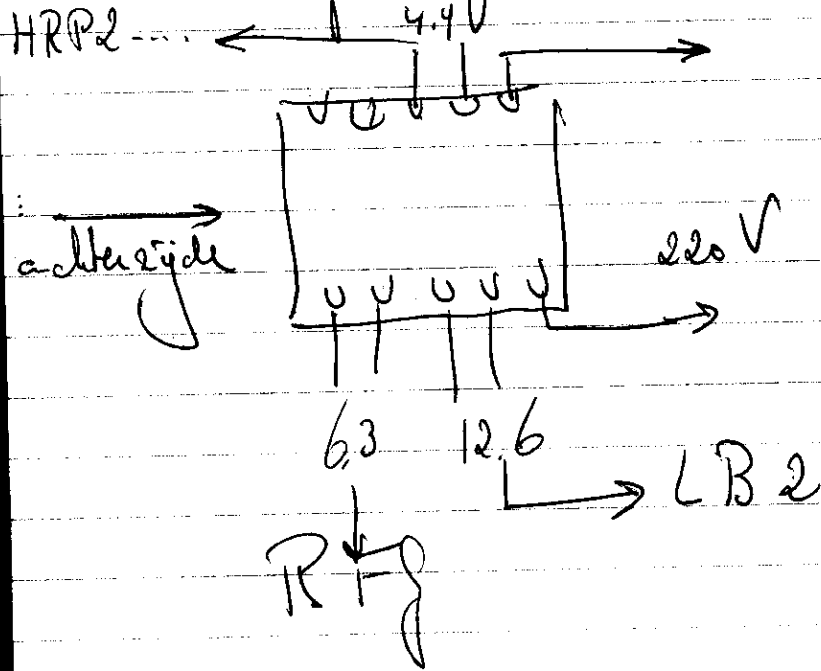 HRP2 ....
4.4V
achterzijde
220 V
6.3
12.6
LB2